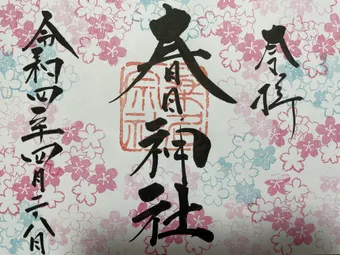 奉拝
春日神社
令和四年四月二八日